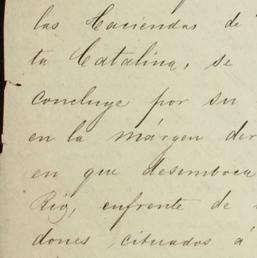 las Haciendas de
ta Catalina, se
concluye por su
en la márgen der
en que desemboca
Rio, enfrente de
dones, cituados á